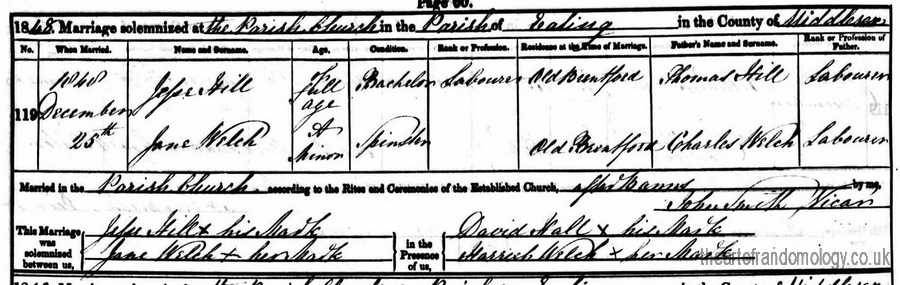 Page 60.
1848. Marriage solemnized at the Parish Church in the Parish of Ealing in the County of Middlesex
No. When Married. Name and Surname. Age. Condition. Rank or Profession. Residence at the Time of Marriage. Father's Name and Surname. Rank or Profession of Father.
119 1848 December 25th
Jesse Hill Full age Bachelor Labourer Old Brentford Thomas Hill Labourer
Jane Welch A Minor Spinster Old Brentford Charles Welch Labourer
Married in the Parish Church according to the Rites and Ceremonies of the Established Church, after Banns by me,
John Smith, Vicar
This Marriage was solemnized between us, Jesse Hill x his Mark in the Presence of us, David Hall x his Mark
Jane Welch x her Mark Harriet Welch x her Mark
theartofrandomology.co.uk